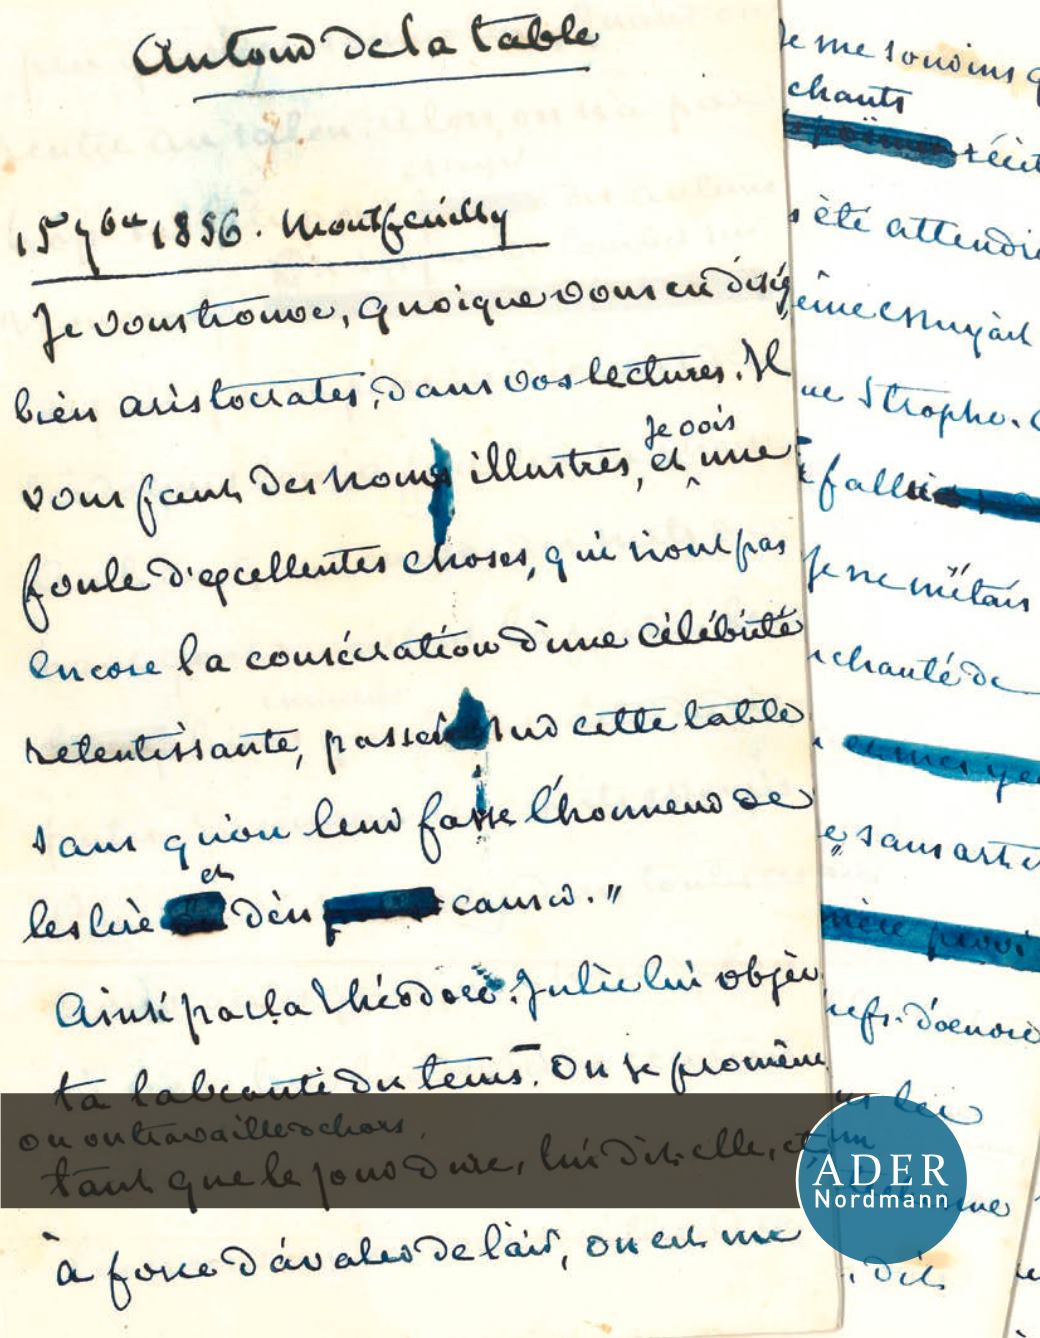 Autour de la table
15 7bre 1856. Montfeuilly
Je vous trouve, quoique vous en disiez,
bien aristocrates, dans vos lectures. Il
je vois
vous faut des noms illustres, et une
foule d'excellentes choses, qui n'ont pas
encore la consécration d'une célébrité
retentissante, passent sur cette table
sans qu'on leur fasse l'honneur de
et
les lire d'en causer."
Ainsi parla Théodore. Julie lui objec
ta la beauté du tems. On se promène
ou on travaille dehors,
tant que le jour dure, lui dit-elle, et,
à force d'avaler de l'air, on est une
je me souviens q
chants
récit
été attendri
même essuyait
ue strophe.
fallu
Je ne m'étais
chanté de
et mes ye
sans art e
mière provi
hefs-d'oeuvre
lu
me
dit
ADER
Nordmann